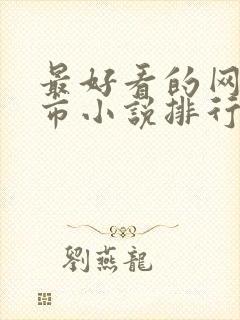 最好看的网
市小說排行
劉燕龍